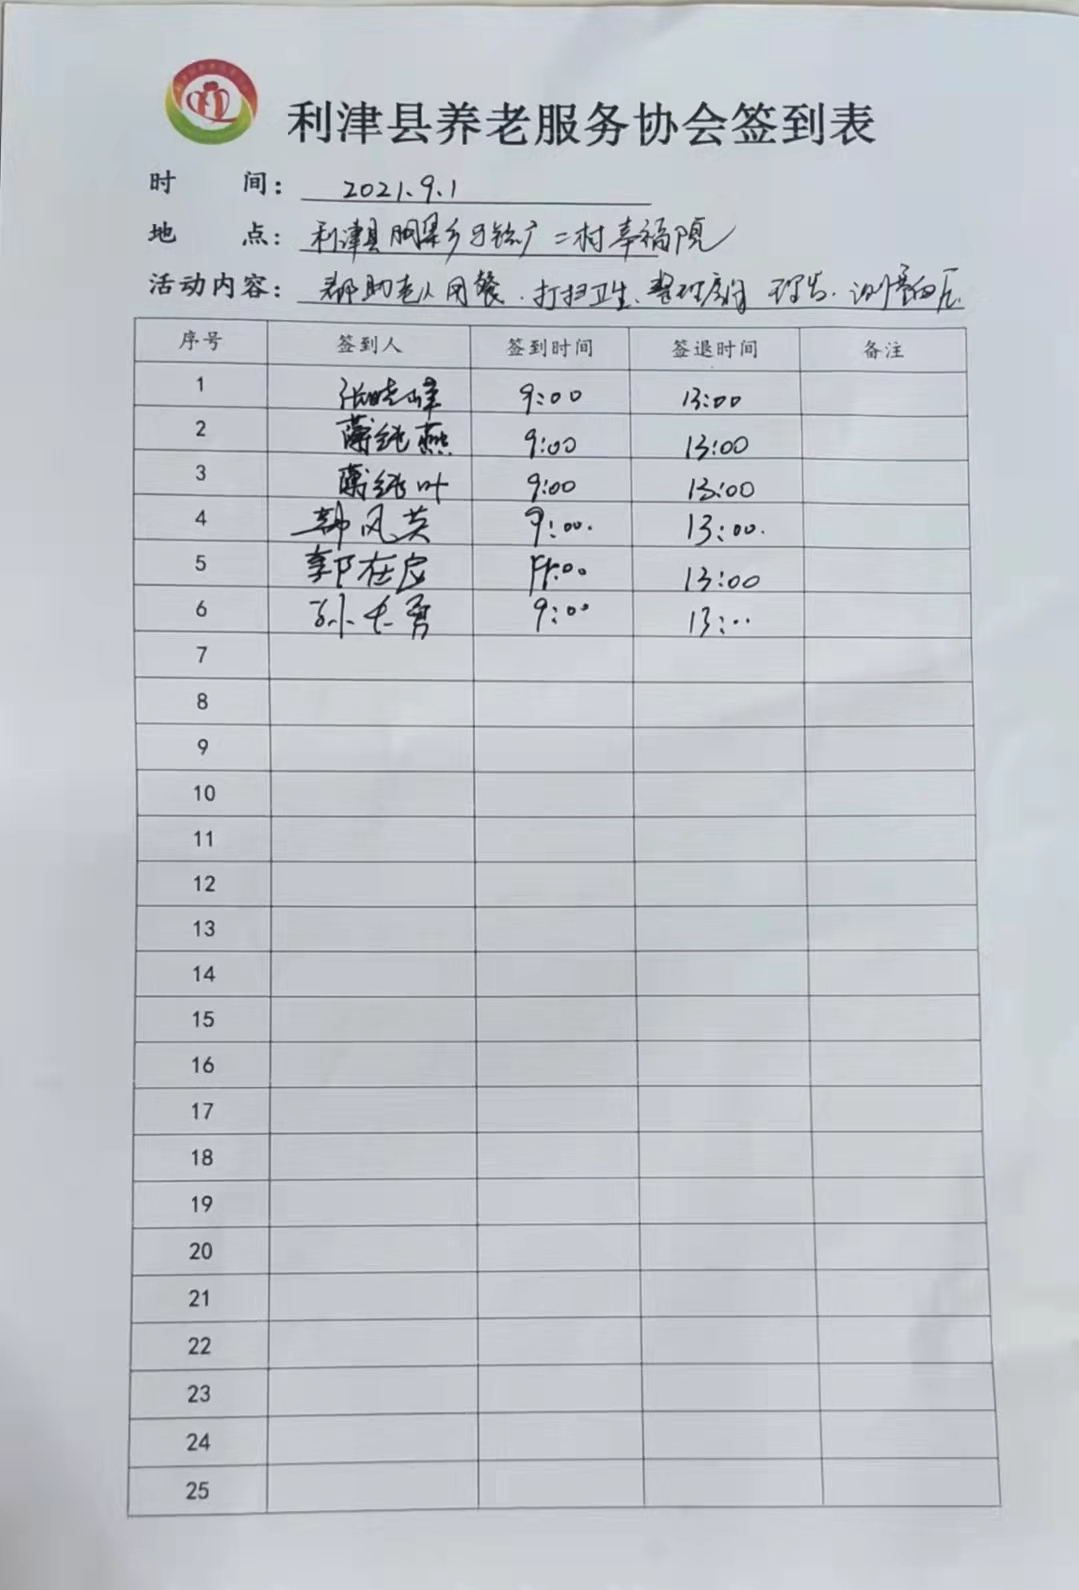 利津县养老服务协会签到表
时 间: 2021.9.1
地 点: 利津县 二村幸福院
活动内容: 帮助老人用餐.打扫卫生、整理房间 理发.测量血压
序号 签到人 签到时间 签退时间 备注
1 张晓峰 9:00 13:00
2 薄纯燕 9:00 13:00
3 薄纯叶 9:00 13:00
4 韩风英 9:00. 13:00.
5 郭在 :00 13:00
6 孙长勇 9:00 13:..
7
8
9
10
11
12
13
14
15
16
17
18
19
20
21
22
23
24
25